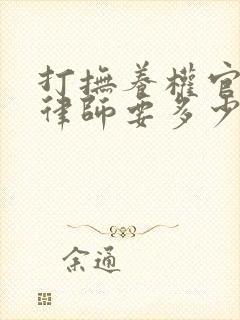 打撫養權官
律師要多少
余通